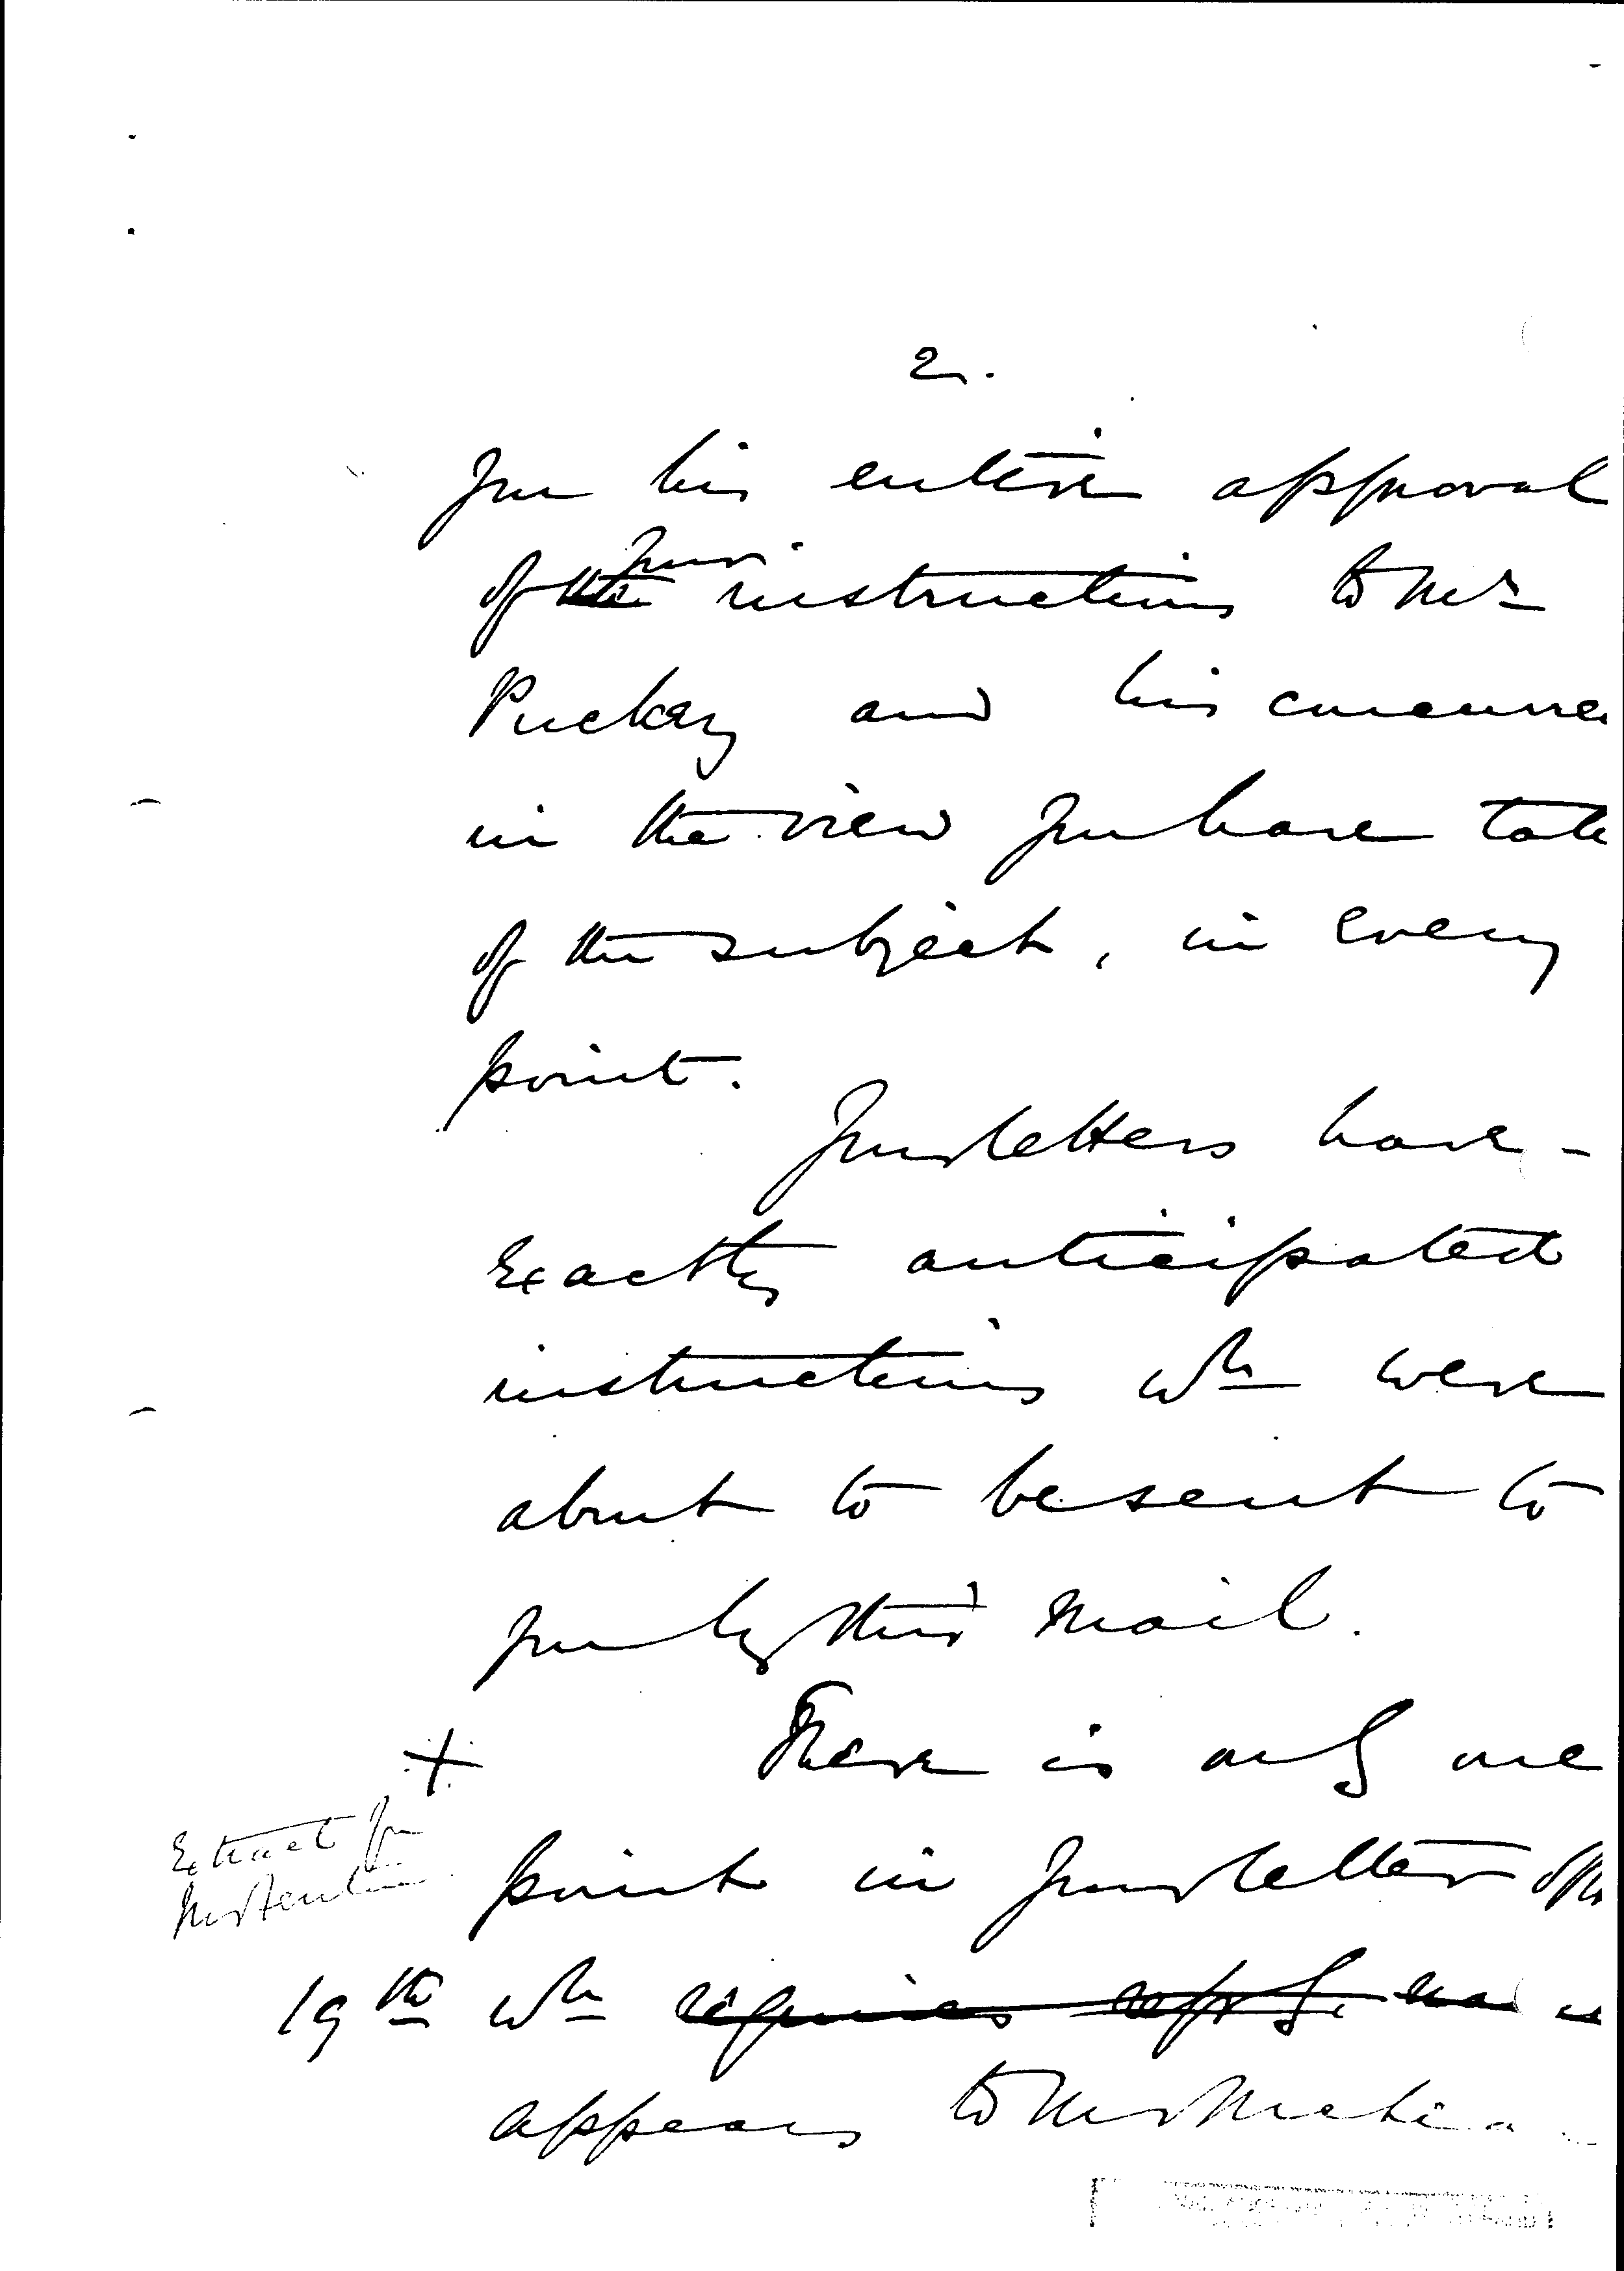 2.
you his entire approval
your
of the instructions to Mr
Puckey and his concurre
in the view you have take
of the subject, in every
point.
Your letters have -
exactly anticipated
instructions wh were
about to be sent to
you by this mail.
+ There is only one
Extract for
point in your letter of the
19th wh requires
appears to Mr